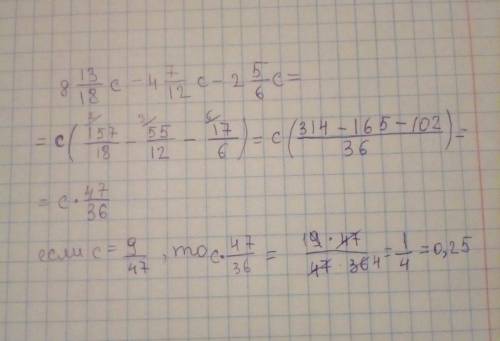 8 13/18 c - 4 7/12 c - 2 5/6 c =
= c(157/18 - 55/12 - 17/6) = c(314 - 165 - 102 / 36) =
= c · 47/36
если c = 9/47 , то c · 47/36 = 9 · 47 / 47 · 36 4 = 1/4 = 0,25